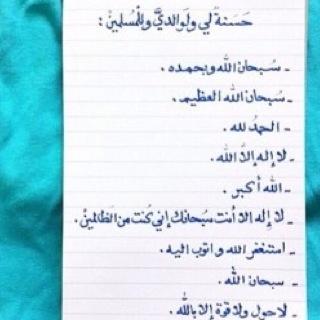 حَسَنةً لي ولوالديَّ وللمُسلمينْ :
- سُبحان الله وبحمده .
- سُبحان الله العظيم .
- الحمدُ لله .
- لا إله إلّا الله .
- الله أكبر .
- لا إله الا أنت سُبحانك إني كُنت من الظالمين .
- استغفر الله واتوب اليه .
- سبحان الله .
- لا حول ولا قوة إلا بالله .